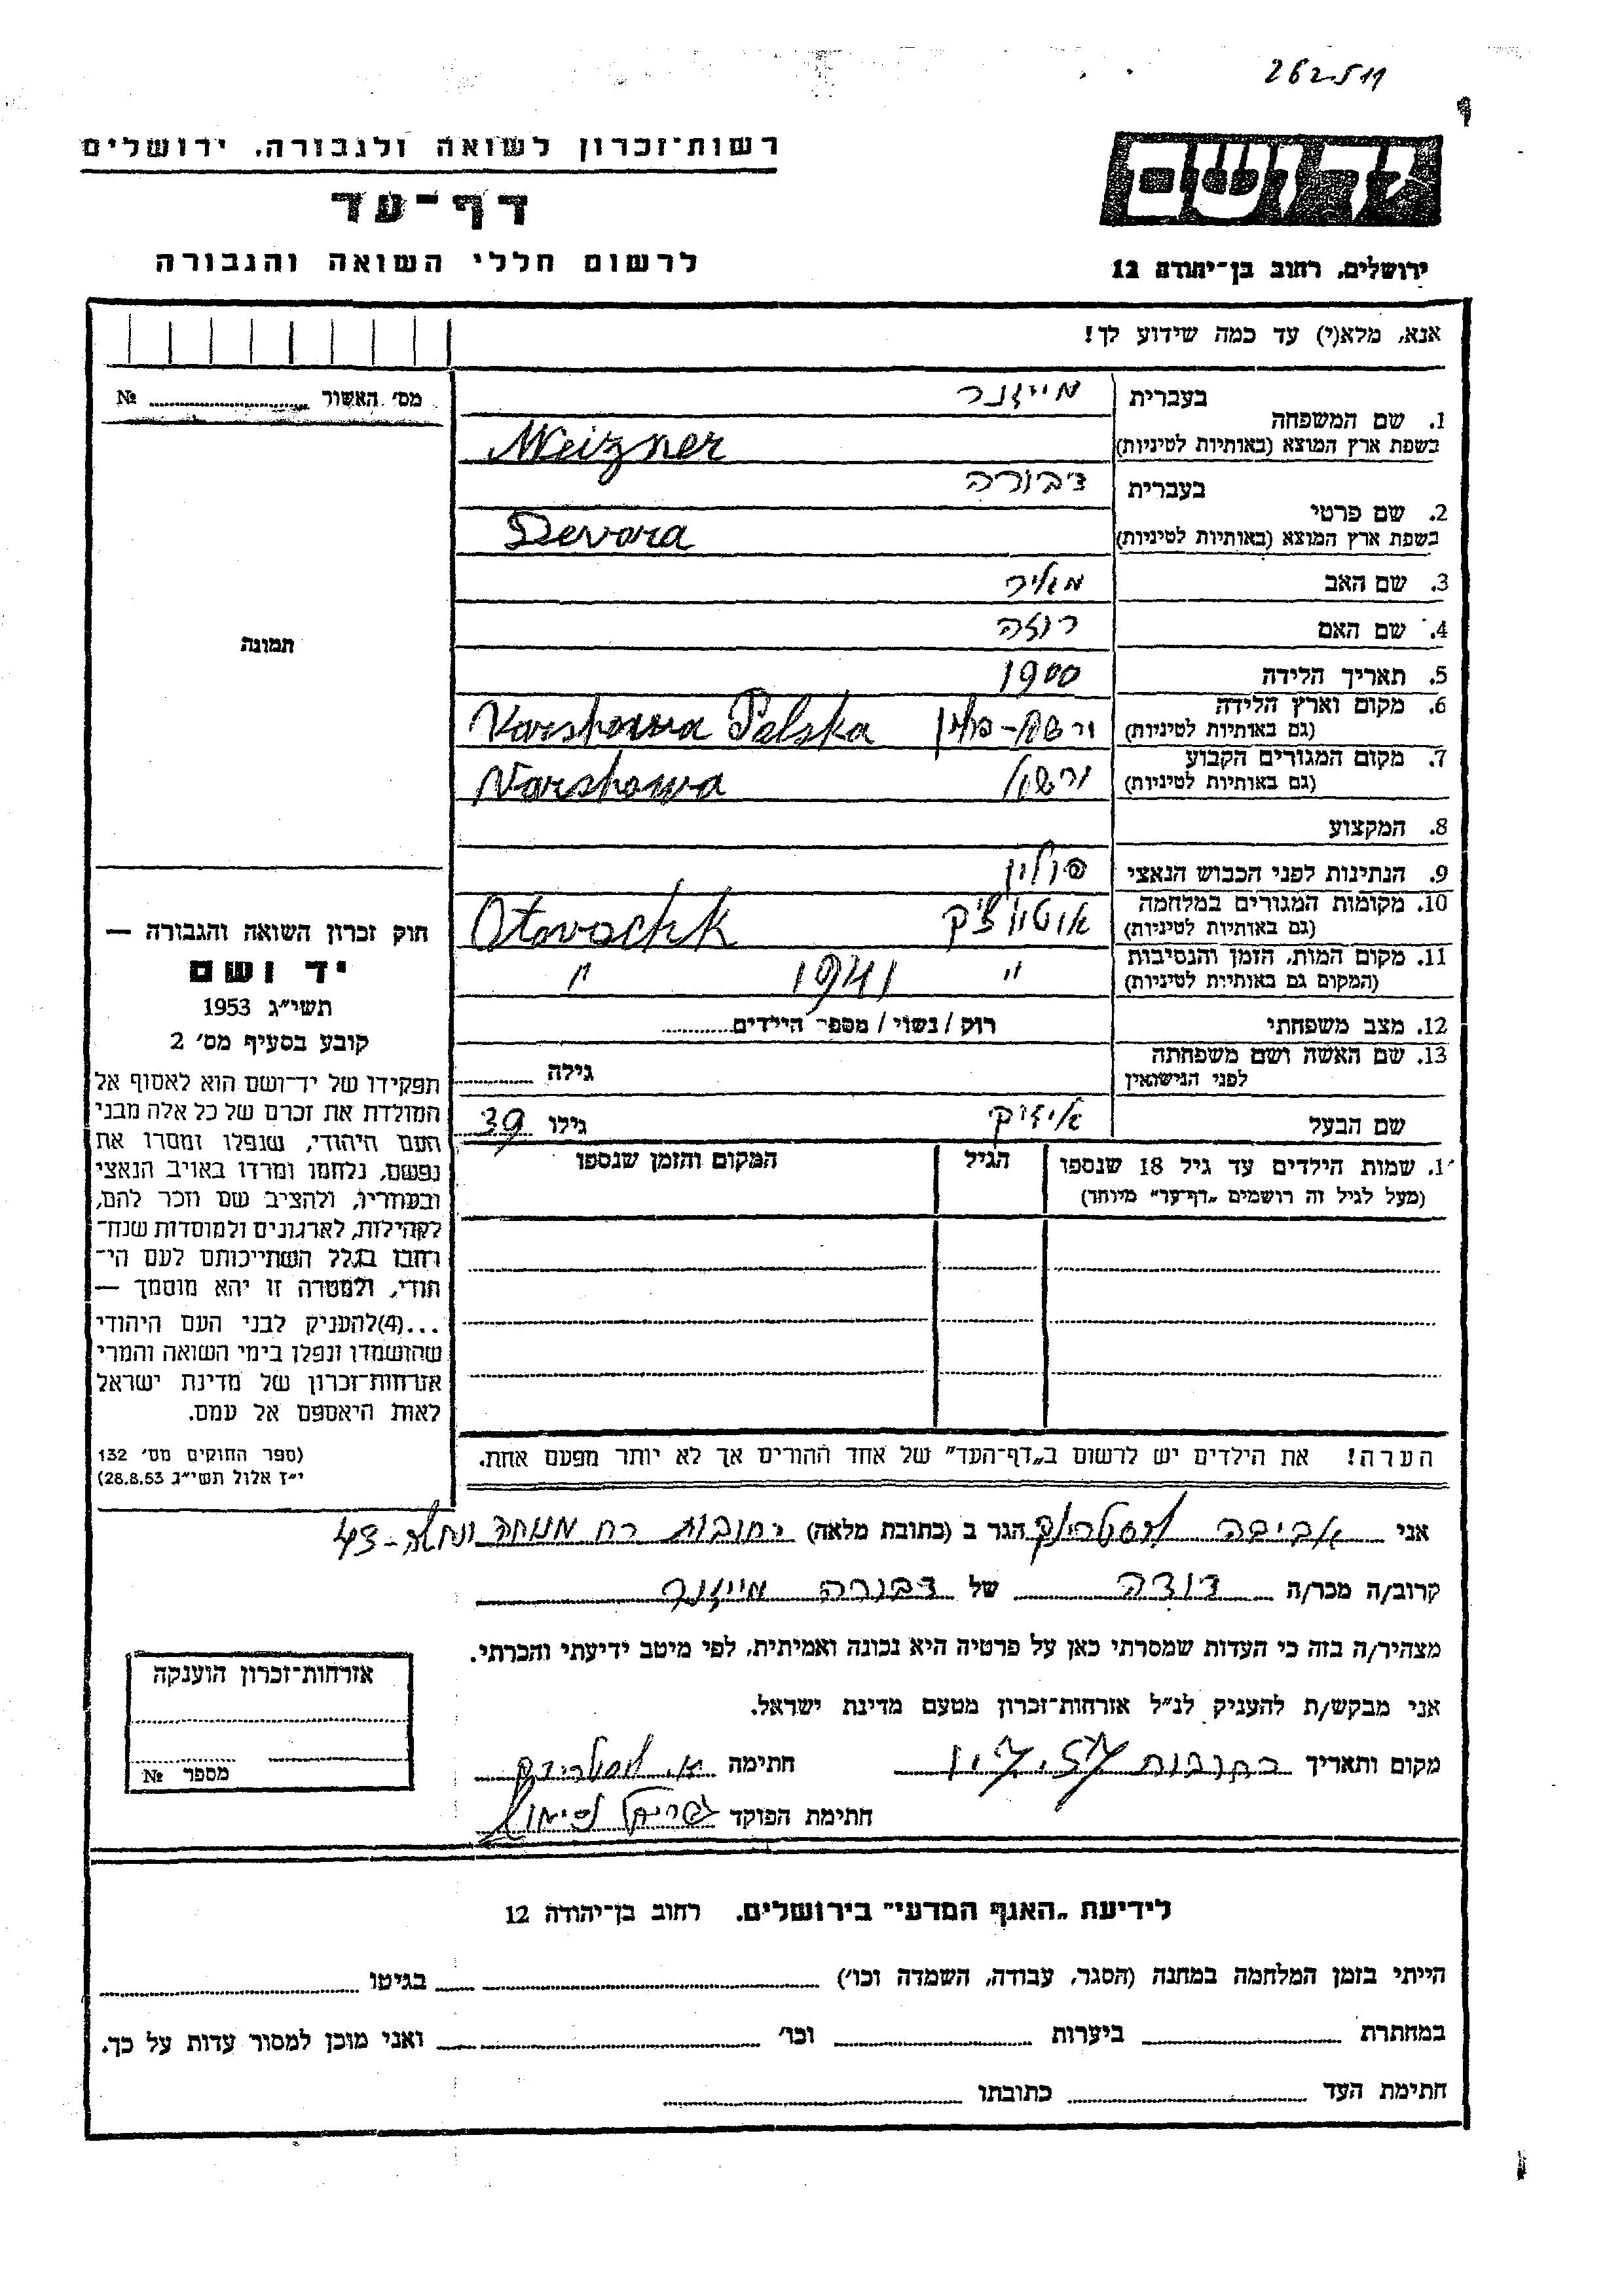 262511
רשות־זכרון לשואה ולגבורה, ירושלים
דף־עד
לרשום חללי השואה והגבורה
ירושלים, רחוב בן־יהודה 12
אנא, מלא(י) עד כמה שידוע לך!
מס׳ האשור № 
בעברית מייזנר
1. שם המשפחה
בשפת ארץ המוצא (באותיות לטיניות) Meizner
בעברית דבורה
2. שם פרטי
בשפת ארץ המוצא (באותיות לטיניות) Devora
3. שם האב מאיר
4. שם האם רוזה
5. תאריך הלידה 1900
6. מקום וארץ הלידה
(גם באותיות לטיניות) ורשה-פולין Varshawa Polska
7. מקום המגורים הקבוע
(גם באותיות לטיניות) Varshawa
8. המקצוע
9. הנתינות לפני הכבוש הנאצי פולין
10. מקומות המגורים במלחמה
(גם באותיות לטיניות) אוטווצק Otwochk
11. מקום המות, הזמן והנסיבות
(המקום גם באותיות לטיניות) " 1941 "
12. מצב משפחתי רוק / נשוי / מספר הילדים
13. שם האשה ושם משפחתה
לפני הנישואין גילה
שם הבעל אייזיק גילו 39
1. שמות הילדים עד גיל 18 שנספו הגיל המקום והזמן שנספו
(מעל לגיל זה רושמים „דף־עד״ מיוחד)
הערה! את הילדים יש לרשום ב„דף־העד״ של אחד ההורים אך לא יותר מפעם אחת.
תמונה
חוק זכרון השואה והגבורה —
יד ושם
תשי״ג 1953
קובע בסעיף מס׳ 2
תפקידו של יד־ושם הוא לאסוף אל
המולדת את זכרם של כל אלה מבני
העם היהודי, שנפלו ומסרו את
נפשם, נלחמו ומרדו באויב הנאצי
ובעוזריו, ולהציב שם וזכר להם,
לקהילות, לארגונים ולמוסדות שנח־
רבו בגלל השתייכותם לעם הי־
הודי, ולמטרה זו יהא מוסמך —
...(4)להעניק לבני העם היהודי
שהושמדו ונפלו בימי השואה והמרי
אזרחות־זכרון של מדינת ישראל
לאות היאספם אל עמם.
(ספר החוקים מס׳ 132
י״ז אלול תשי״ג 28.8.53)
אני אביבה הגר ב (כתובת מלאה) רחובות רח מנוחה ונחלה - 43
קרוב/ה מכר/ה דודה של דבורה מייזנר
מצהיר/ה בזה כי העדות שמסרתי כאן על פרטיה היא נכונה ואמיתית, לפי מיטב ידיעתי והכרתי.
אני מבקש/ת להעניק לנ״ל אזרחות־זכרון מטעם מדינת ישראל.
מקום ותאריך רחובות חתימה א.
חתימת הפוקד
אזרחות־זכרון הוענקה
מספר №
לידיעת „האגף המדעי״ בירושלים, רחוב בן־יהודה 12
הייתי בזמן המלחמה במחנה (הסגר, עבודה, השמדה וכו׳) בגיטו
במחתרת ביערות וכו׳ ואני מוכן למסור עדות על כך.
חתימת העד כתובתו